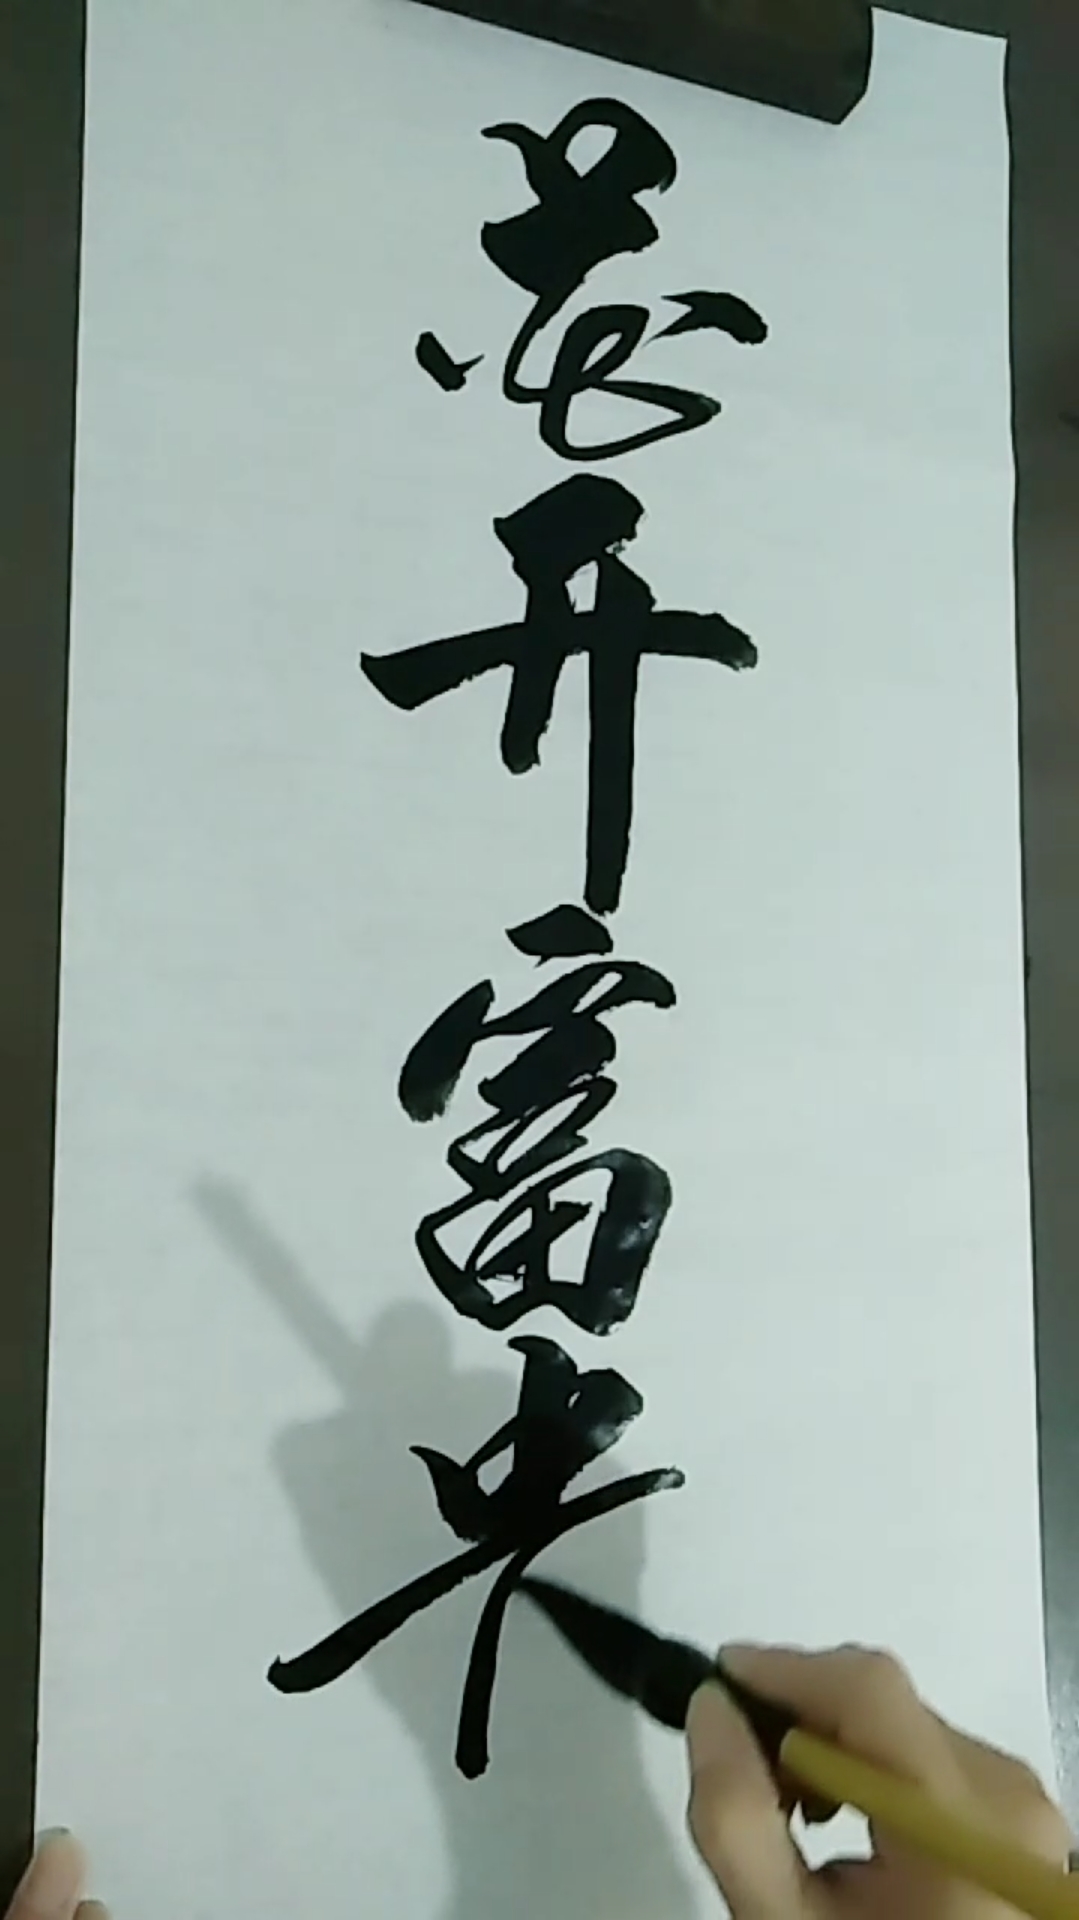 花开富贵